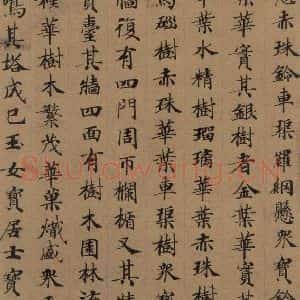 懸赤珠鈴車渠羅網懸眾寶鈴
葉華實其銀樹者金葉華實其
華葉水精樹瑠璃華葉赤珠樹
馬瑙樹赤珠華葉車渠樹眾寶
牆復有四門周帀欄楯又其牆
寶臺其牆四面有樹木園林流
種華樹木繁茂華菓熾盛眾
其塔戊巳玉女寶居士寶
Shufawang.CN